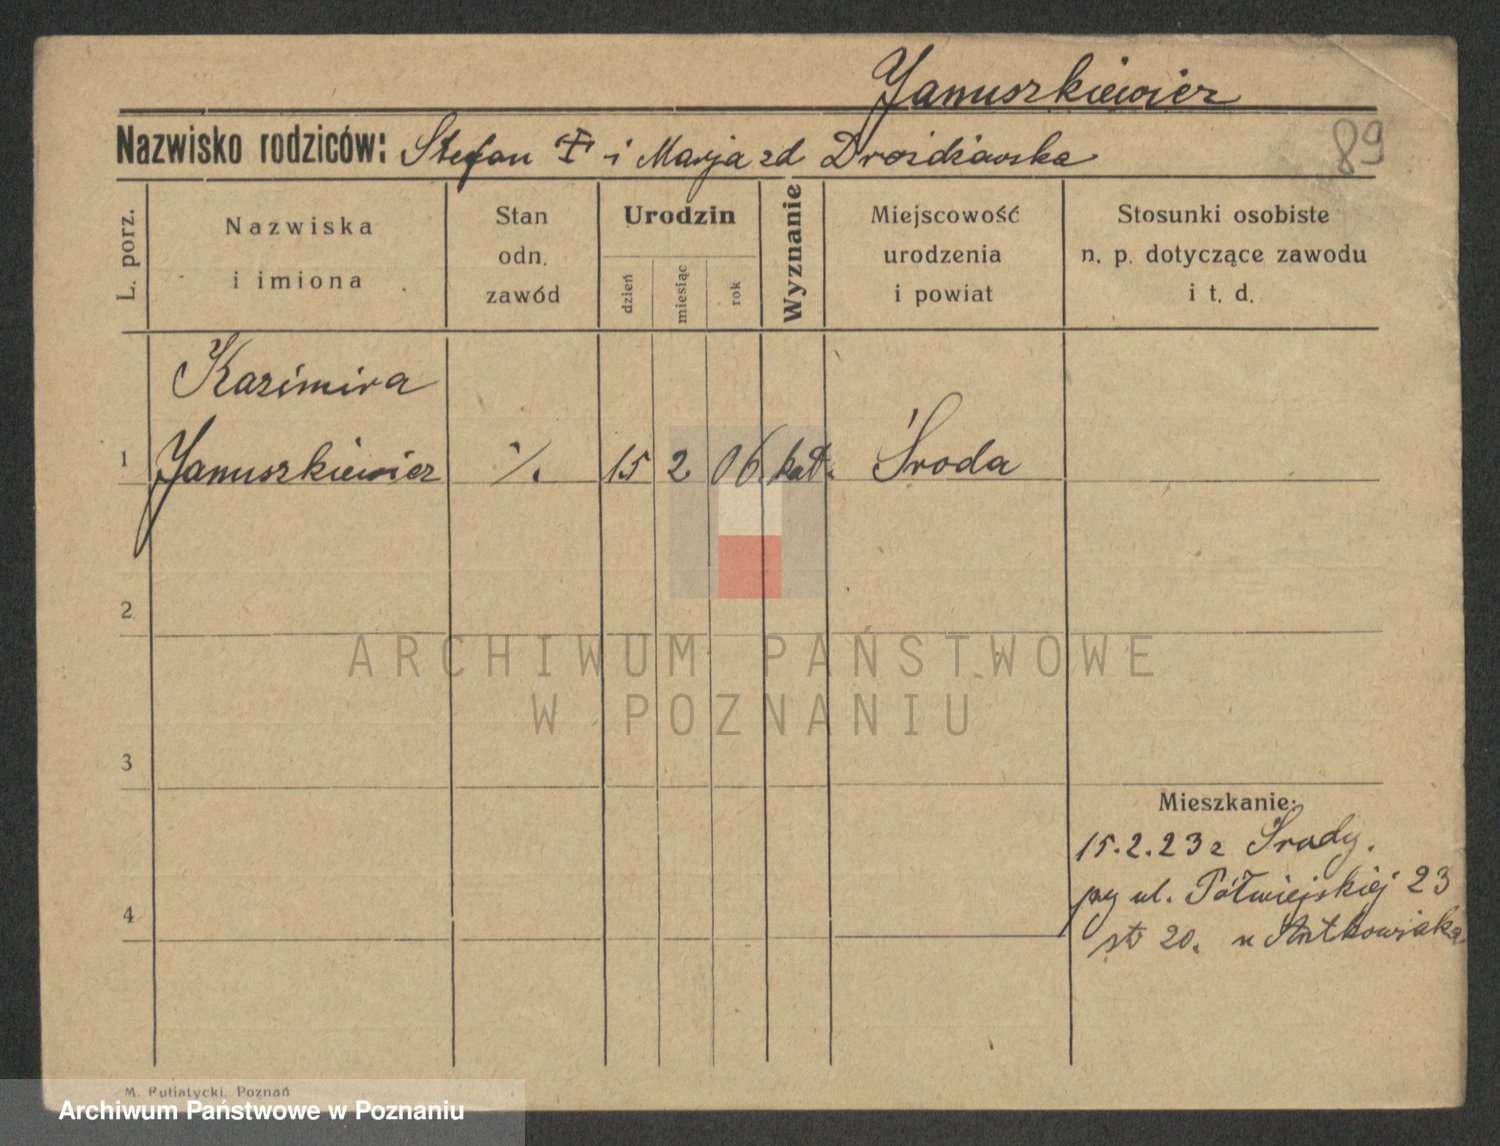 Januszkiewicz
Nazwisko rodziców: Stefan i Marja zd Droidżawska
89
L. porz.
Nazwiska
i imiona
Stan
odn.
zawód
Urodzin
dzień
miesiąc
rok
Wyznanie
Miejscowość
urodzenia
i powiat
Stosunki osobiste
n. p. dotyczące zawodu
i t. d.
Kazimira
1 Januszkiewicz ·/. 15 2 06. kat. Środa
2
ARCHIWUM PAŃSTWOWE
W POZNANIU
3
Mieszkanie:
15.2.23 z Środy.
przy ul. Półwiejskiej 23
4
20. u Antkowiaka
M. Putiatycki, Poznań
Archiwum Państwowe w Poznaniu